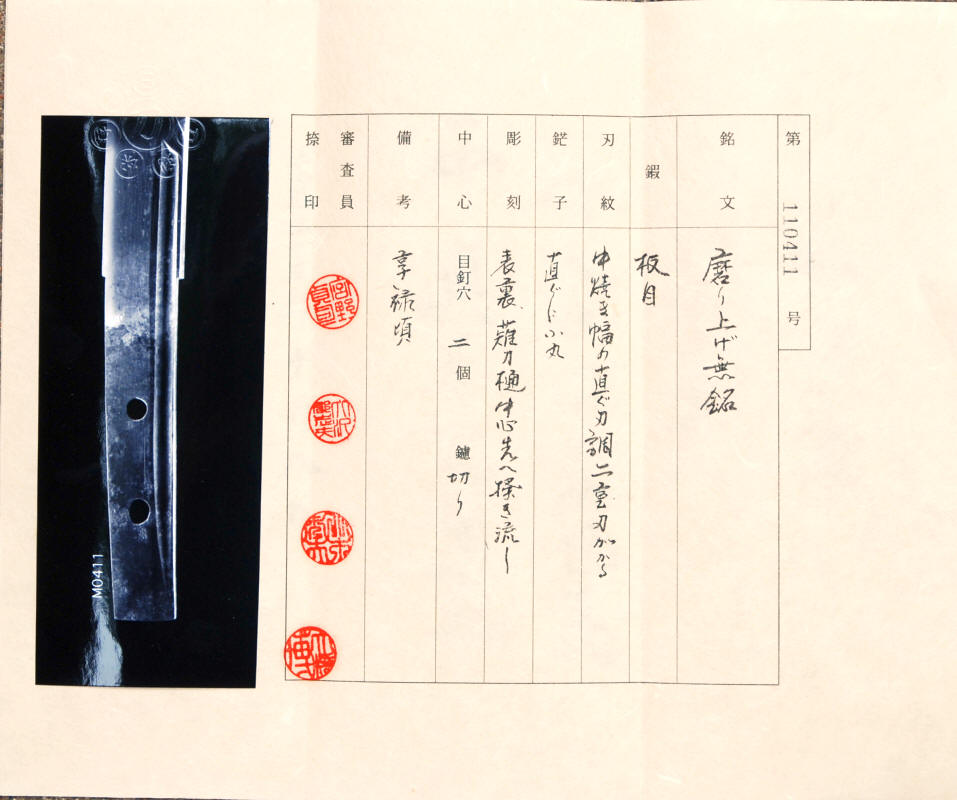 第 110411 号
銘文
磨り上げ無銘
鍜
板目
刃紋
中焼き幅の直ぐ刃調二重刃がかる
鋩子
直ぐに小丸
彫刻
表裏、薙刀樋中心先へ掻き流し
中心
目釘穴 二 個 鑢 切り
備考
享禄頃
審査員
捺印
M0411